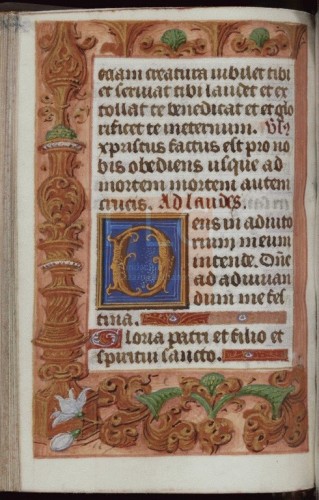 egam creatura iubilet tibi
et seruiat tibi laudet et ex
tollat te benedicat et et glo
rificet te ineternum. Vs
xpristus factus est pro no
bis obediens usque ad
mortem mortem autem
crucis. Ad laudes.
Deus in adiuto
rium meum
intende. Dne
ad adiuuan
dum me fes
tina.
Gloria patri et filio et
spiritui sancto.